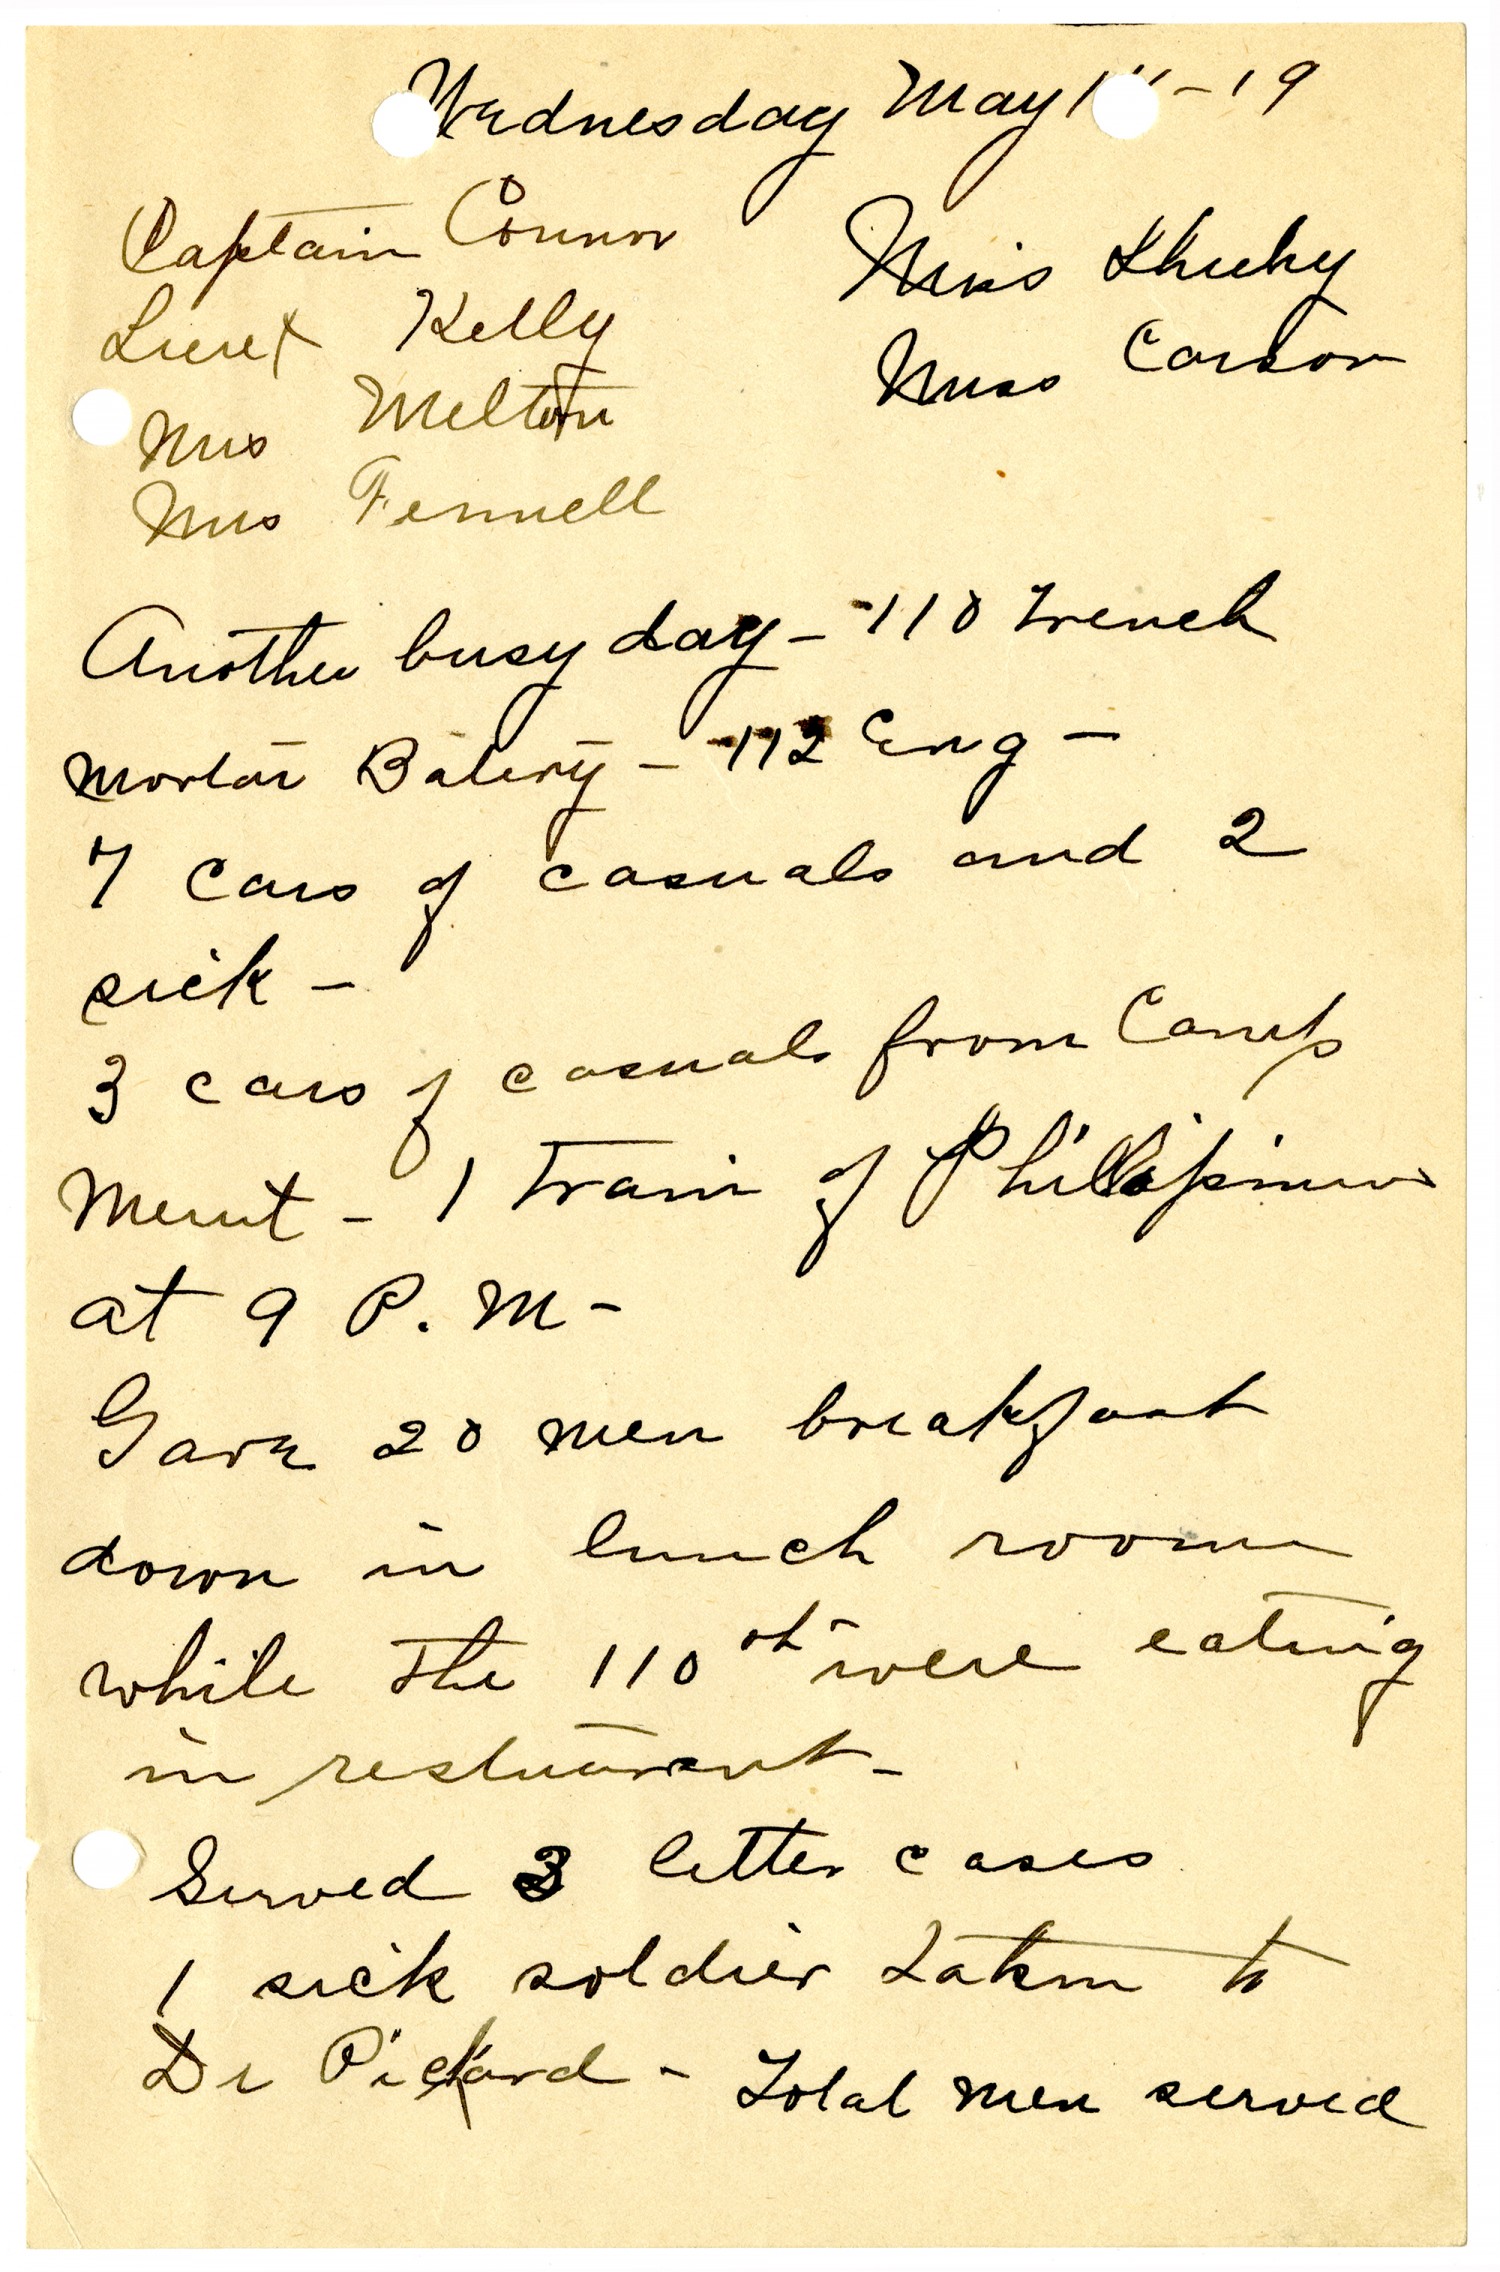 Wednesday May 1 -19
Captain Connor
Lieut Kelly
Mrs Melton
Mrs Fennell
Miss
Miss Carson
Another busy day - 110 Trench
Mortar Batery - 112 Eng -
7 cars of casuals and 2
sick -
3 cars of casuals from Camp
Merrit - 1 Train of Phillipinos
at 9 P. M -
Gave 20 men breakfast
down in lunch room
while the 110th were eating
in restuarant -
Served 3 litter cases
1 sick soldier taken to
Dr Pickard - Total men served